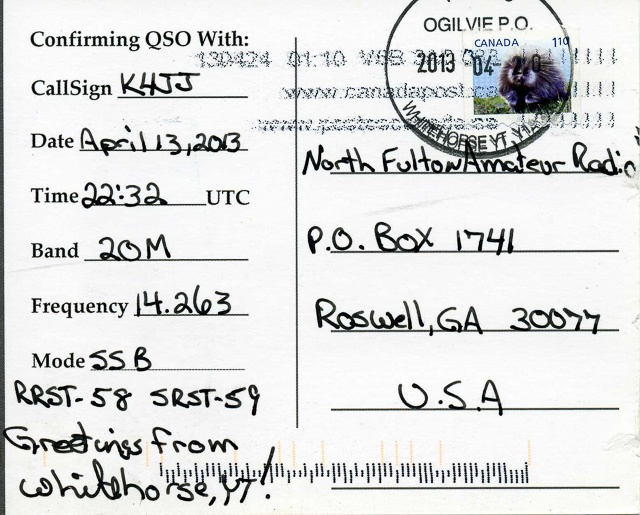 Confirming QSO With:
CallSign K4JJ
Date April 13, 2013
Time 22:32 UTC
Band 20M
Frequency 14.263
Mode SSB
RRST-58 SRST-59
Greetings from
Whitehorse, YT!
OGILVIE P.O.
2013 04 20
WHITEHORSE YT
CANADA 110
130424 01:10
www.canadapost.ca
North Fulton Amateur Radio
P.O. Box 1741
Roswell, GA 30077
U.S.A